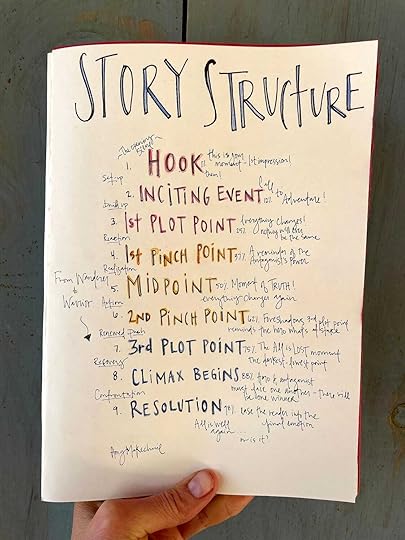 STORY STRUCTURE
The opening
1. HOOK 1% this is your moment - 1st impression!
Set-up
2. INCITING EVENT 12% Call to Adventure!
build up
3. 1st PLOT POINT 25% Everything changes! nothing will ever be the same
Reaction
4. 1st PINCH POINT 37% A reminder of the Antagonist's power
Realization
5. MIDPOINT 50% Moment of TRUTH! everything changes again
From Wanderer to Warrior
Action
6. 2ND PINCH POINT 62% Foreshadows 3rd plot point reminds the hero what's at stake
Renewed Push
7. 3rd PLOT POINT 75% The All is LOST moment the darkest - lowest point
Recovery
8. CLIMAX BEGINS 88% hero & antagonist must face one another - there will be one winner
Confrontation
9. RESOLUTION ease the reader into the final emotion
All is well again
or is it?
Amy Makechnie